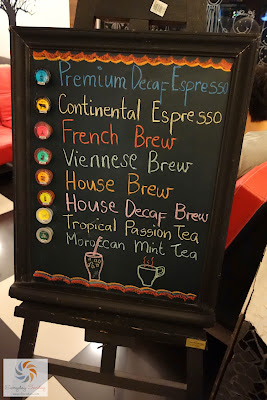 Premium Decaf Espresso
Continental Espresso
French Brew
Viennese Brew
House Brew
House Decaf Brew
Tropical Passion Tea
Moroccan Mint Tea